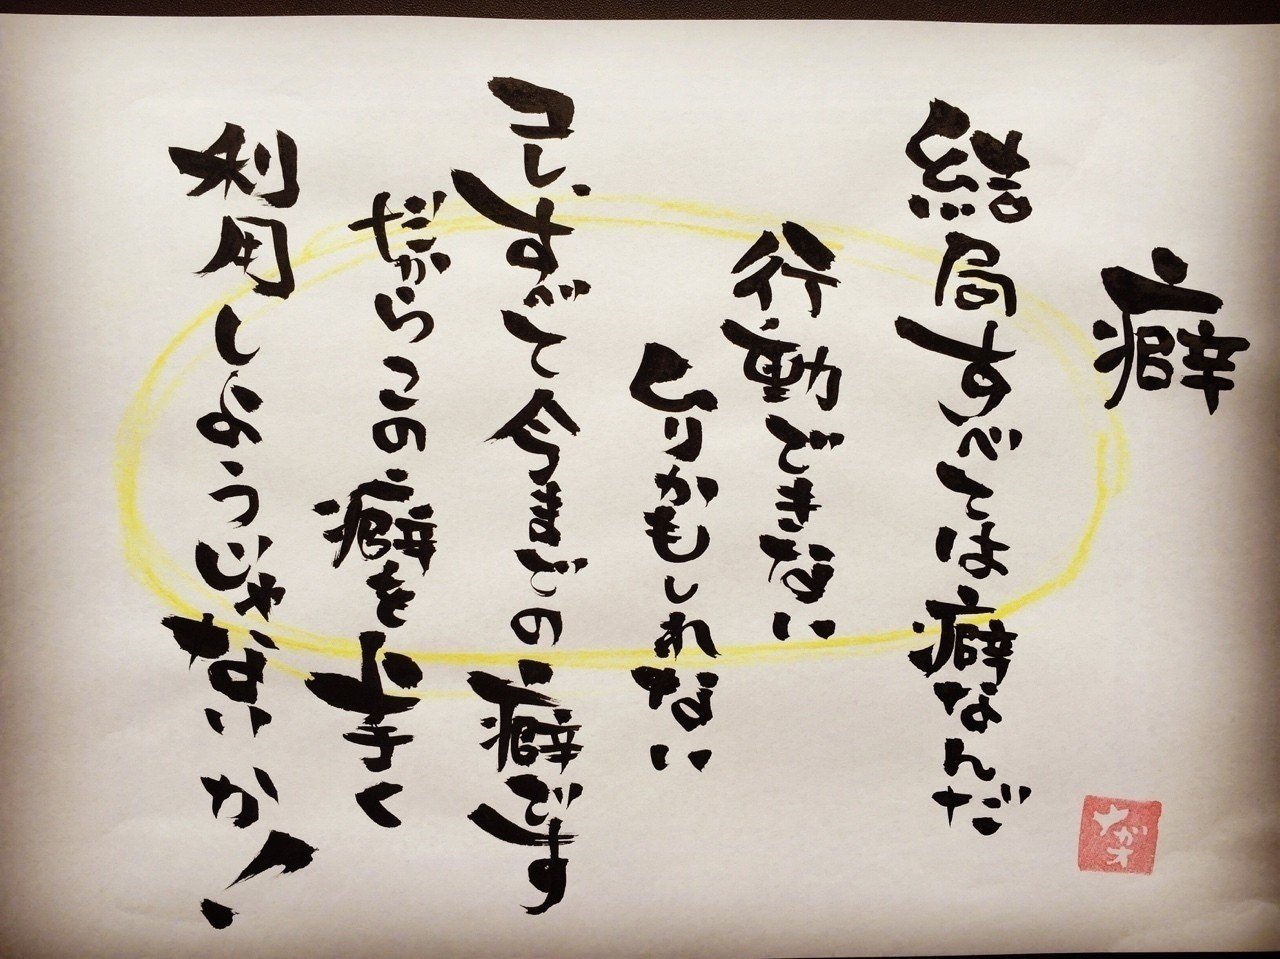 癖
結局すべては癖なんだ
行動できない
ムリかもしれない
コレ、すべて今までの癖です
だからこの癖を上手く
利用しようじゃないか!
ナガオ